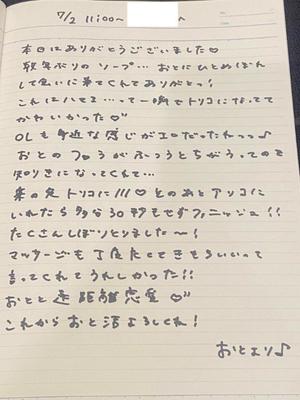 7/2 11:00〜 へ
本日はありがとうございました♡
数年ぶりのソープ…おとにひとめぼれ
して会いに来てくれてありがとっ!
これはハマる…って一瞬でトリコになってて
かわいかった♡
OLも身近な感じがエロだったねっっ♪
おとのフロうがふつうとちがうってので
知りきになってくれて…
案の定トリコに///♡ そのあとアソコに
いれたら多分30秒もせずフィニッシュ!!
たくさんしぼりとりました〜!
マッサージも丁度よくてきもちいいって
言ってくれてうれしかった!!
おとと遠距離恋愛♡
これからおと活よろしくね!
おとより♪